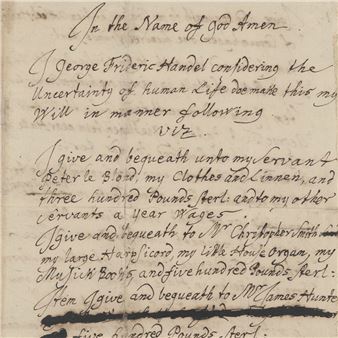 In the Name of God Amen.
I George Frideric Handel considering the
Uncertainty of human Life doe make this my
Will in manner following
viz.
I give and bequeath unto my Servant
Peter le Blond, my Clothes and Linnen, and
three hundred Pounds Sterl: and to my other
Servants a year Wages.
I give and bequeath to Mr Christopher Smith
my large Harpsicord, my little House Organ, my
Musick Books, and five hundred Pounds Sterl:
Item I give and bequeath to Mr James Hunter
five hundred Pounds Sterl: